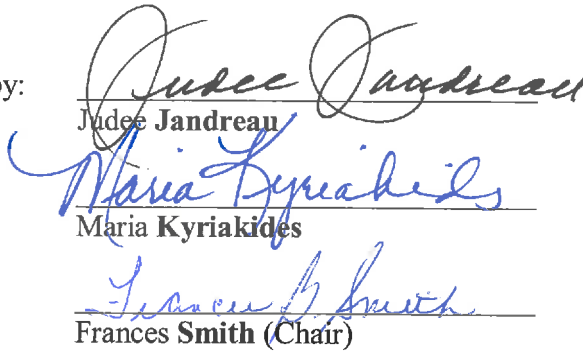 by: Judee Jandreau
Judee Jandreau
Maria Kyriakides
Maria Kyriakides
Frances B. Smith
Frances Smith (Chair)